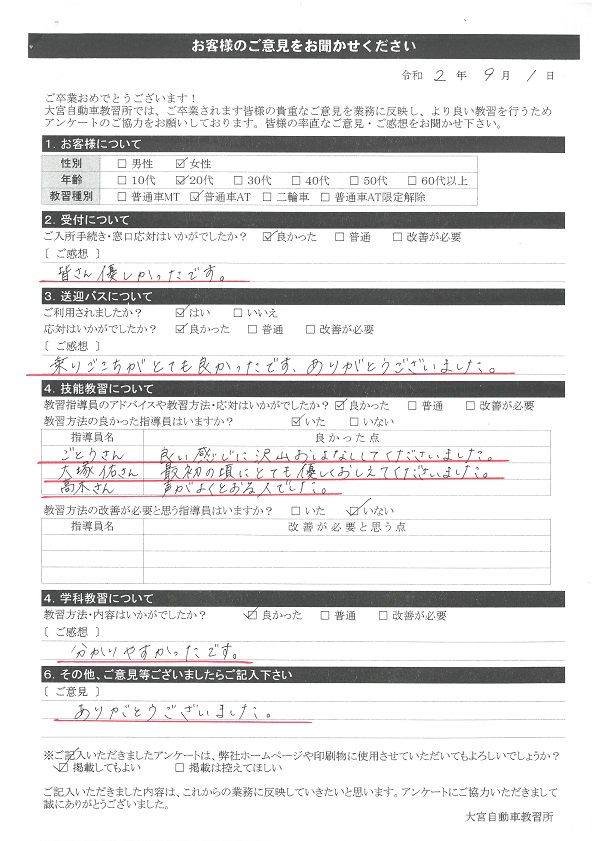 お客様のご意見をお聞かせください
令和 2 年 9 月 1 日
ご卒業おめでとうございます！
大宮自動車教習所では、ご卒業されます皆様の貴重なご意見を業務に反映し、より良い教習を行うため
アンケートのご協力をお願いしております。皆様の率直なご意見・ご感想をお聞かせ下さい。
1. お客様について
性別 □ 男性 ☑ 女性
年齢 □ 10代 ☑ 20代 □ 30代 □ 40代 □ 50代 □ 60代以上
教習種別 □ 普通車MT ☑ 普通車AT □ 二輪車 □ 普通車AT限定解除
2. 受付について
ご入所手続き・窓口応対はいかがでしたか？ ☑ 良かった □ 普通 □ 改善が必要
[ ご感想 ]
皆さん優しかったです。
3. 送迎バスについて
ご利用されましたか？ ☑ はい □ いいえ
応対はいかがでしたか？ ☑ 良かった □ 普通 □ 改善が必要
[ ご感想 ]
乗りごこちがとても良かったです、ありがとうございました。
4. 技能教習について
教習指導員のアドバイスや教習方法・応対はいかがでしたか？ ☑ 良かった □ 普通 □ 改善が必要
教習方法の良かった指導員はいますか？ ☑ いた □ いない
指導員名 良かった点
ごとうさん 良い感じに沢山おはなしてくださいました。
大塚佑さん 最初の頃にとても優しくおしえてくださいました。
高木さん 声がよくとおる人でした。
教習方法の改善が必要と思う指導員はいますか？ □ いた ☑ いない
指導員名 改善が必要と思う点
4. 学科教習について
教習方法・内容はいかがでしたか？ ☑ 良かった □ 普通 □ 改善が必要
[ ご感想 ]
分かりやすかったです。
6. その他、ご意見等ございましたらご記入下さい
[ ご意見 ]
ありがとうございました。
※ご記入いただきましたアンケートは、弊社ホームページや印刷物に使用させていただいてもよろしいでしょうか？
☑ 掲載してもよい □ 掲載は控えてほしい
ご記入いただきました内容は、これからの業務に反映していきたいと思います。アンケートにご協力いただきまして
誠にありがとうございました。
大宮自動車教習所